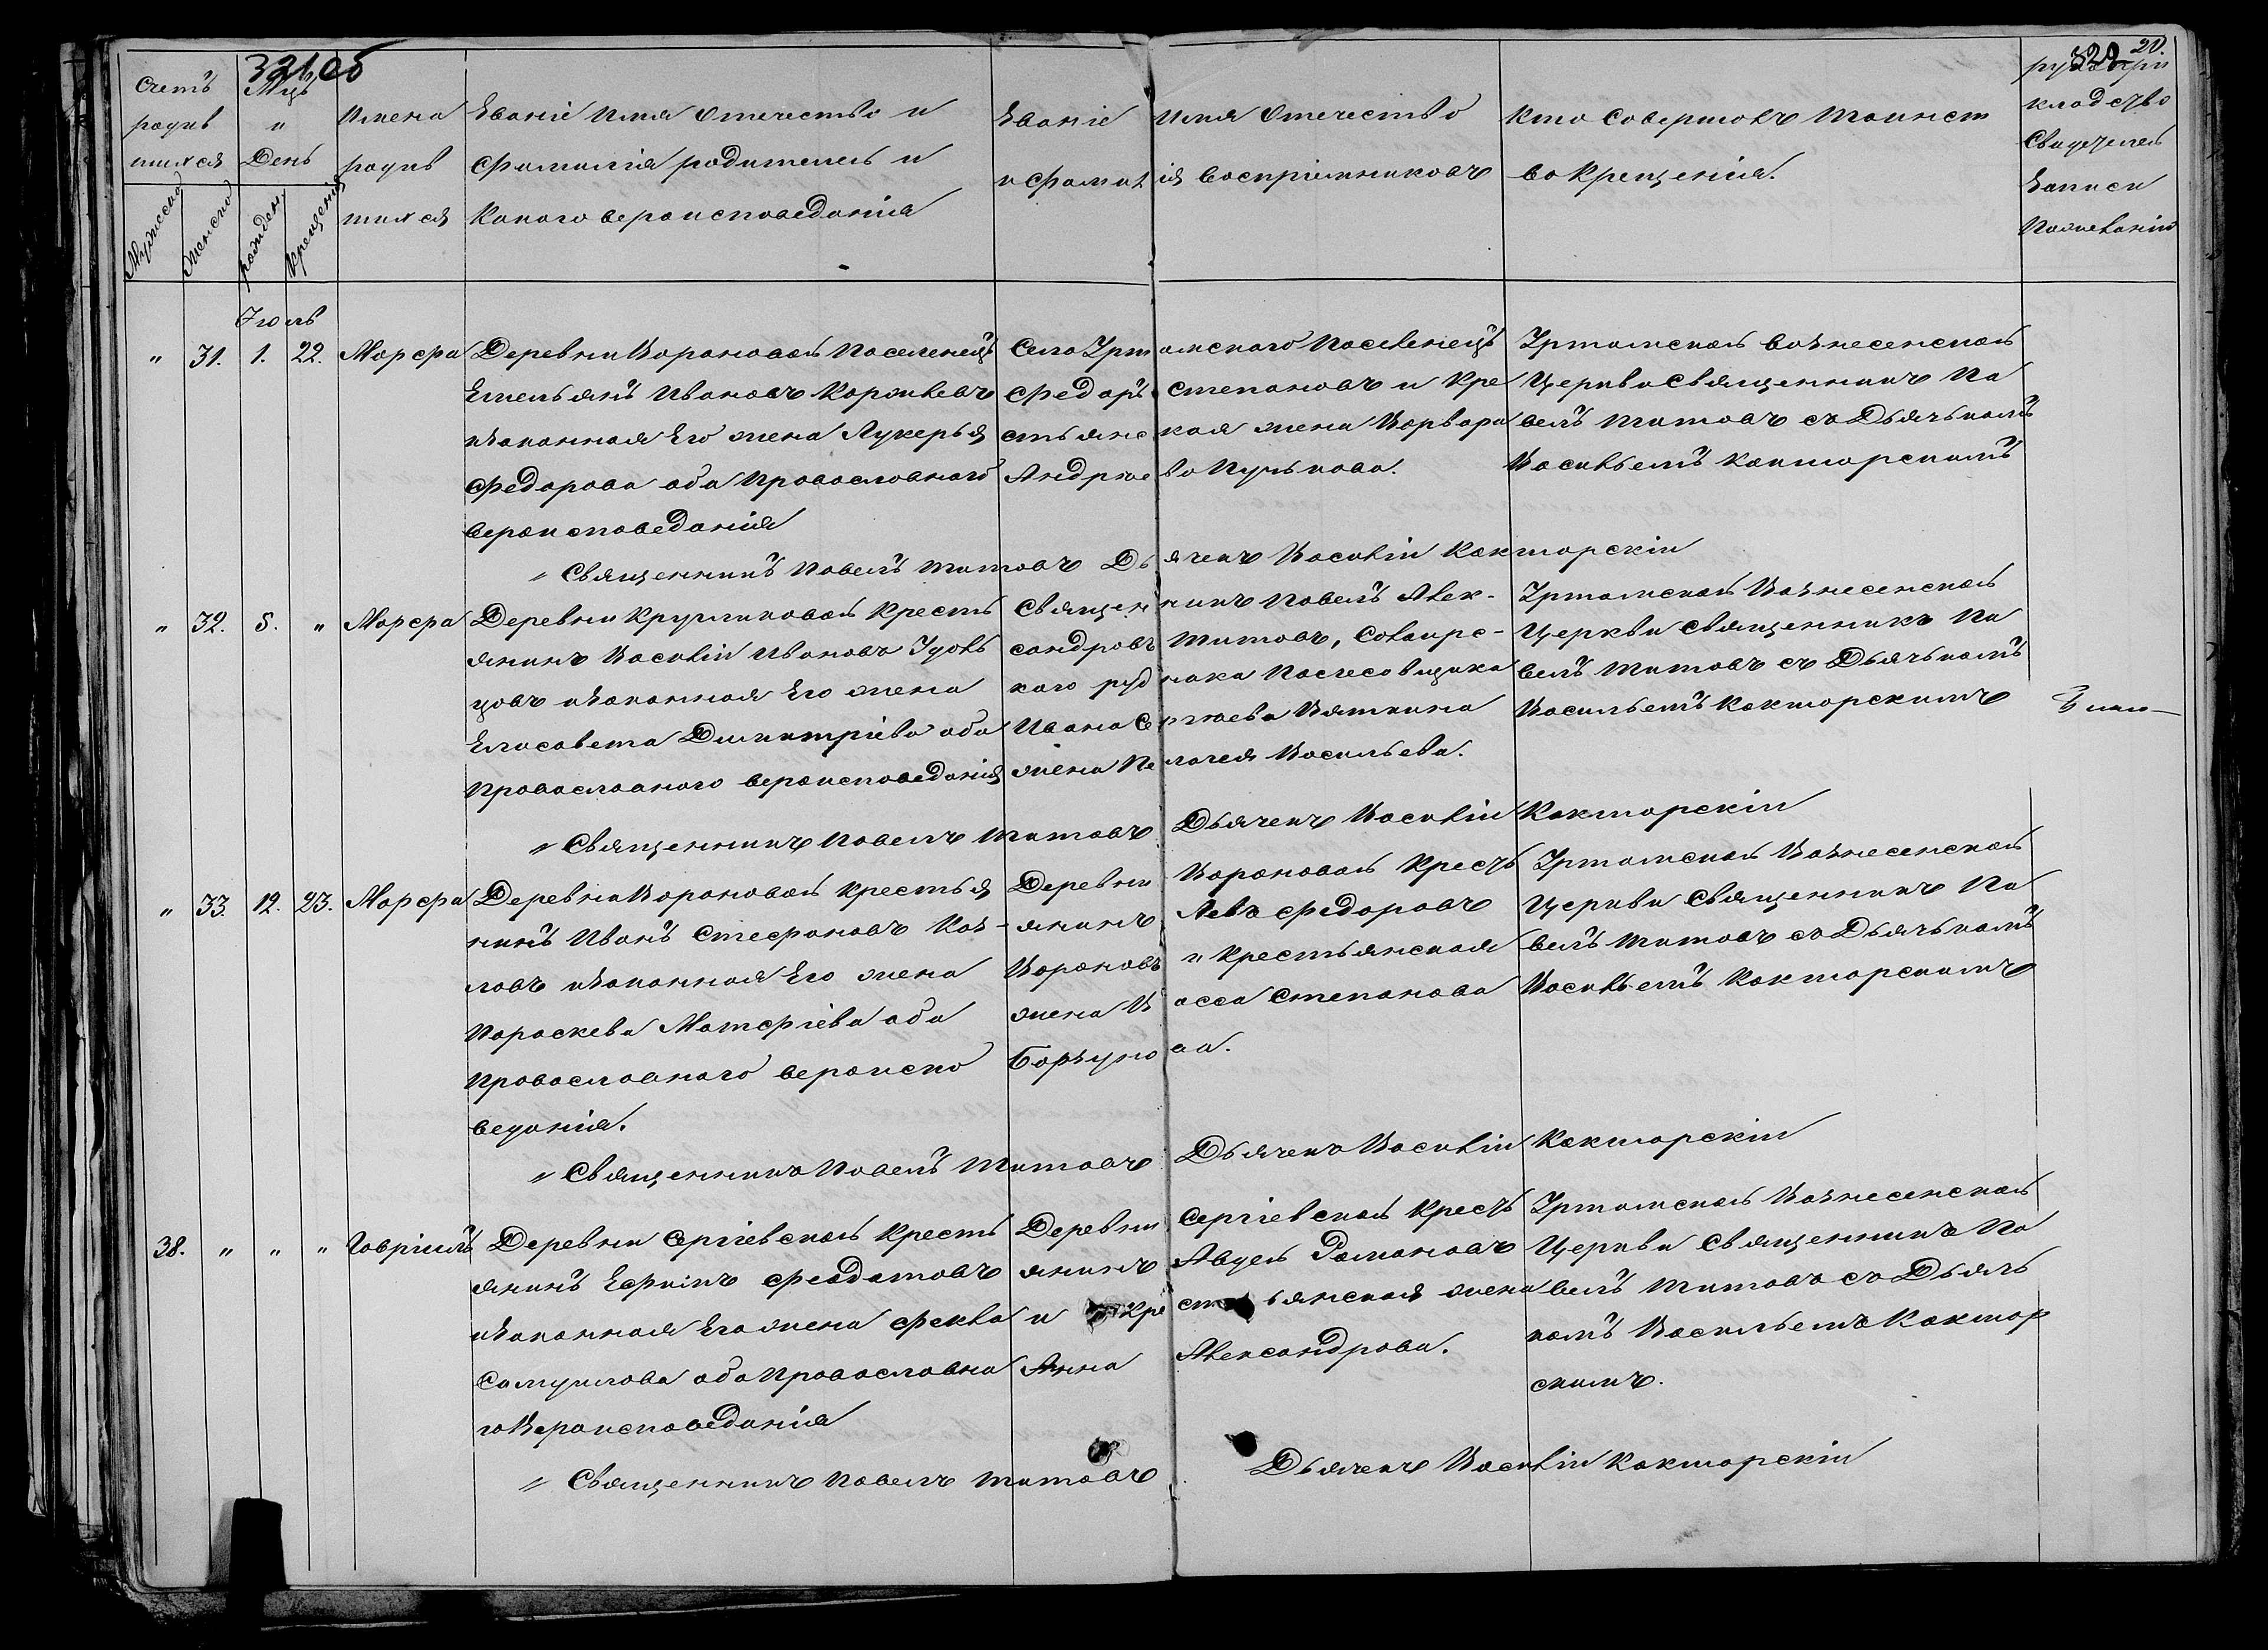 321 об
322 20.
Счетъ
родив
шихся
Мужеска
Женско
Мцъ
и
День
рожден
крещенія
Имена
родив
шихся
Званіе Имя Отечество и
Фамилія родителей и
Какого вероисповеданія
Званіе Имя Отечество
и Фамилія Воспріемниковъ
Кто Совершовъ Таинст
во Крещенія.
рукопри
кладство
Свидетелей
Записи
По желанію
Іюль
" 31. 1. 22. Марфа
Деревни Вороновой Поселенецъ
Емельянъ Ивановъ
изаконная Его жена Лукерья
Федорова оба Православнаго
вероисповеданія
Села Иртомскаго Поселенецъ
Федоръ Степановъ и Кре
стьянская жена Варвара
Андреева Пулькова.
Иртомской Вознесенской
Церкви Священникъ Па
велъ Титовъ съ Дьячькомъ
Васильемъ Какшарскимъ
" Священникъ Павелъ Титовъ Дьячекъ Василій Какшарскій
" 32. 5. " Марфа
Деревни Кругликовой Кресть
янинъ Василій Ивановъ Удов
цовъ изаконная Его жена
Елисавета Димитріева оба
Православнаго вероисповеданія
Священникъ Павелъ Алек-
сандровъ Титовъ,
каго рудника
Ивана Сергеева Вяткина
жена Пелагея Васильева.
Иртомской Вознесенской
Церкви Священникъ Па
велъ Титовъ съ Дьячькомъ
Васильемъ Какшарскимъ
" Священникъ Павелъ Титовъ Дьячекъ Василій Какшарскій
" 33. 12. 23. Марфа
Деревни Вороновой крестья
нинъ Иванъ Стефановъ Коз-
ловъ изаконная Его жена
Параскева Матфіева оба
Православнаго вероиспо
веданія.
Деревни Вороновой Кресть
янинъ Левъ Федоровъ
Вороновъ и Крестьянская
жена Васса Степанова
Иртомской Вознесенской
Церкви Священникъ Па
велъ Титовъ съ Дьячькомъ
Васильемъ Какшарскимъ
" Священникъ Павелъ Титовъ Дьячекъ Василій Какшарскій
38. " " " Гавріилъ
Деревни Сергіевской Кресть
янинъ Ефимъ Феодотовъ
изаконная Его жена Фекла
Самуилова оба Православна
го Вероисповеданія
Деревни Сергіевской Кресть
янинъ Авдей Романовъ
и Крестьянская жена
Анна Александрова.
Иртомской Вознесенской
Церкви Священникъ Па
велъ Титовъ съ Дьячь
комъ Васильемъ Какшар
скимъ.
" Священникъ Павелъ Титовъ Дьячекъ Василій Какшарскій